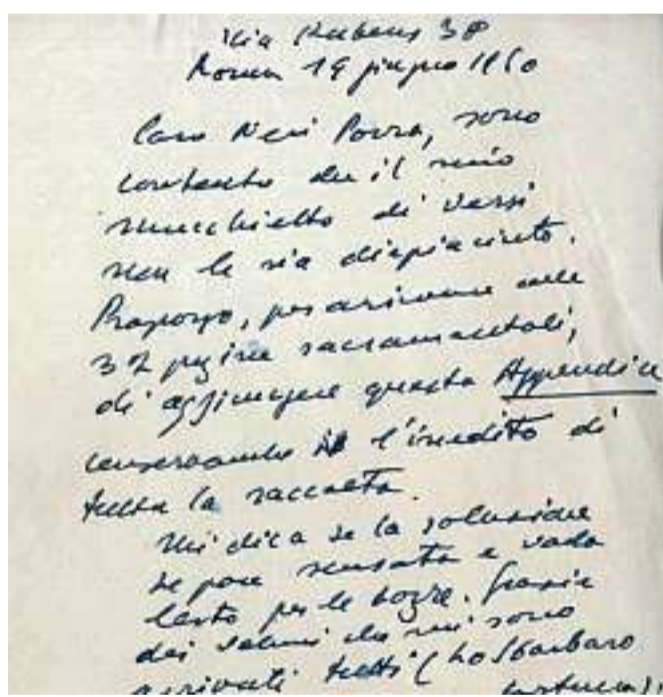 Via Rubens 38
Roma 19 giugno 1960
Caro Neri Pozza, sono
contento che il mio
mucchietto di versi
non le sia dispiaciuto.
Propongo, per arrivare alle
32 pagine sacramentali,
di aggiungere questa Appendice
conservando l'inedito di
tutta la raccolta.
Mi dica se la soluzione
le pare sensata e vada
lesto per le bozze. Grazie
dei volumi che mi sono
arrivati tutti (Lo Sbarbaro